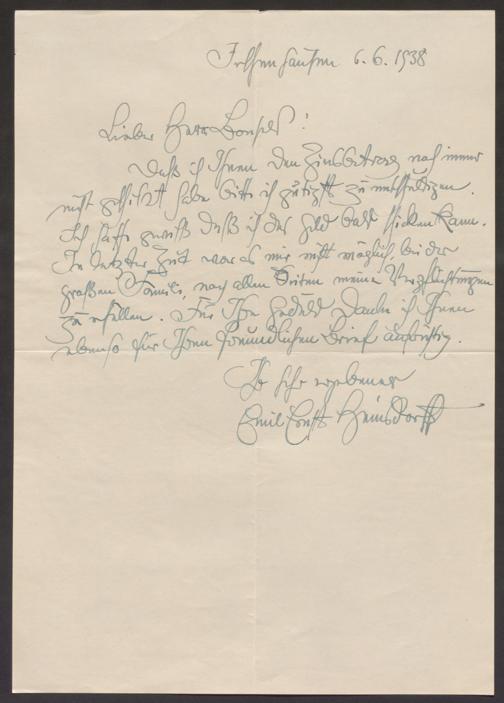 Irschenhausen 6.6.1938
Lieber Herr Bonsels!
Daß ich Ihnen den Zinsbetrag noch immer
nicht geschickt habe bitte ich gütigst zu entschuldigen.
Ich hoffe gewiß daß ich das Geld bald schicken kann.
In letzter Zeit war es mir nicht möglich, bei der
großen Familie, nach allen Seiten meine Verpflichtungen
zu erfüllen. Für Ihre Geduld danke ich Ihnen
ebenso für Ihren freundlichen Brief aufrichtig.
Ihr sehr ergebener
Emil Ernst Heinsdorff